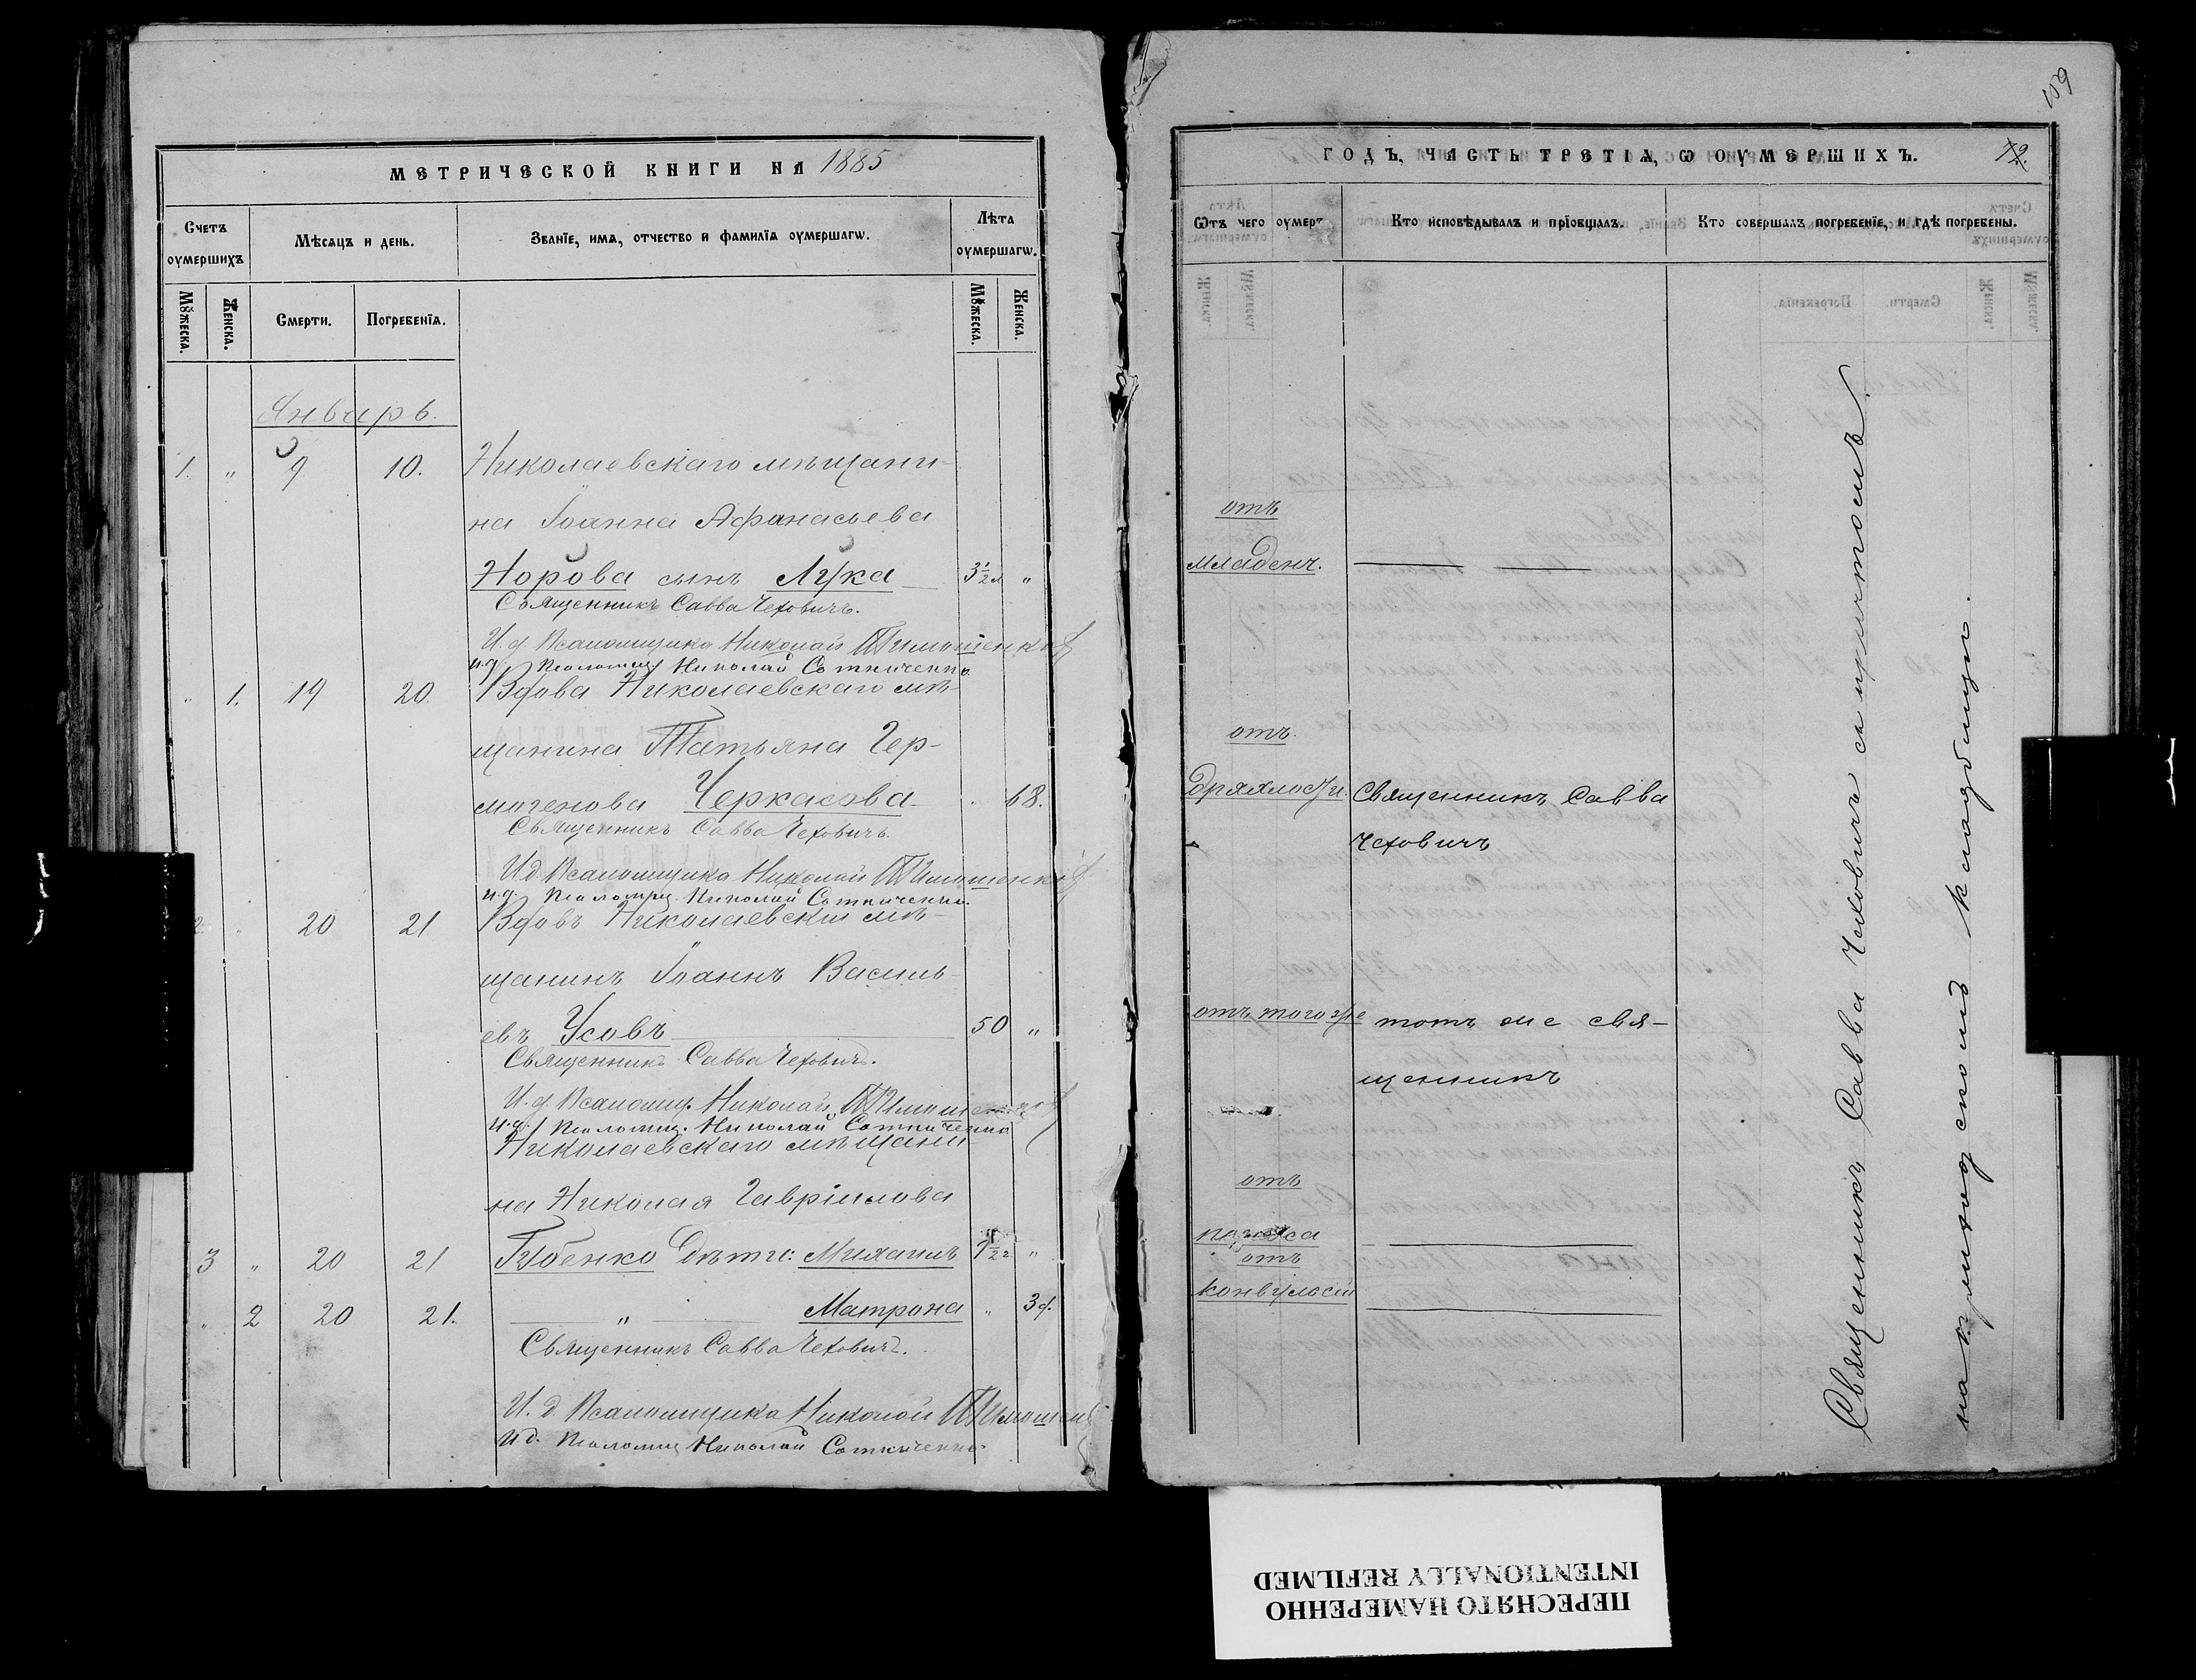 МЕТРИЧЕСКОЙ КНИГИ НА 1885
Счетъ оумершихъ
Мѣсяцъ и день.
Званїе, имя, отчество и фамилїя оумершагѡ.
Лѣта оумершагѡ.
Мꙋжеска.
Женска.
Смерти.
Погребенїя.
Мꙋжеска.
Женска.
Январь.
1. " 9 10. Николаевскаго мѣщани-
на Іоанна Афанасьева
Норова сынъ Лука 3 1/2 м "
Священникъ Савва Чеховичъ.
И. д. Псаломщика Николай Тимошенков
и.д. Псаломщ. Николай Сотниченко
" 1. 19 20. Вдова Николаевскаго мѣ-
щанина Татьяна Гер-
могенова Черкасова 68.
Священникъ Савва Чеховичъ
И.д. Псаломщика Николай Тимошенков
и.д. Псаломщ. Николай Сотниченко.
2. " 20 21 Вдовъ Николаевскій мѣ-
щанинъ Іоаннъ Василь-
евъ Усовъ 50 "
Священникъ Савва Чеховичъ.
И. д. Псаломщ. Николай Тимошенков
и.д. Псаломщ. Николай Сотниченко
Николаевскаго мѣщани
на Николая Гавріилова
3 " 20 21 Губенко дѣти: Михаилъ 1/2 г. "
" 2 20 21. " Матрона " 3 д.
Священникъ Савва Чеховичъ.
И. д. Псаломщика Николай Тимошен
И.д. Псаломщ Николай Сотниченко.
159
ГОДЪ, ЧАСТЬ ТРЕТІЯ, Ѡ ОУМЕРШИХЪ.
Ѿтъ чего оумеръ
Кто исповѣдывалъ и прїобщалъ.
Кто совершалъ погребенїе, и гдѣ погребены.
отъ
младенч.
отъ
дряхлости. Священникъ Савва
Чеховичъ
отъ того же тотъ же свя-
щенникъ
отъ
поноса
отъ
конвульсіи
Священникъ Савва Чеховичъ съ причтомъ
на приходскомъ кладбищѣ.
ПЕРЕСНЯТО НАМЕРЕННО
INTENTIONALLY REFILMED